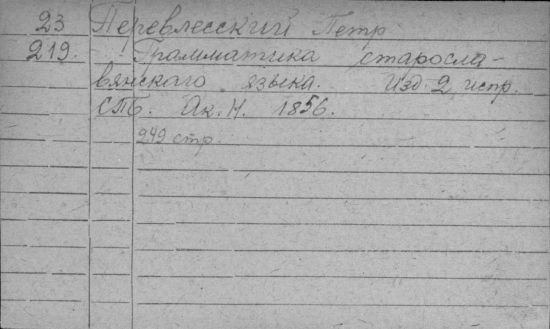 23 Перевлесский Петр
219. Грамматика старосла-
вянскаго языка. Изд. 2 испр.
СПБ. Ак. Н. 1856.
249 стр.